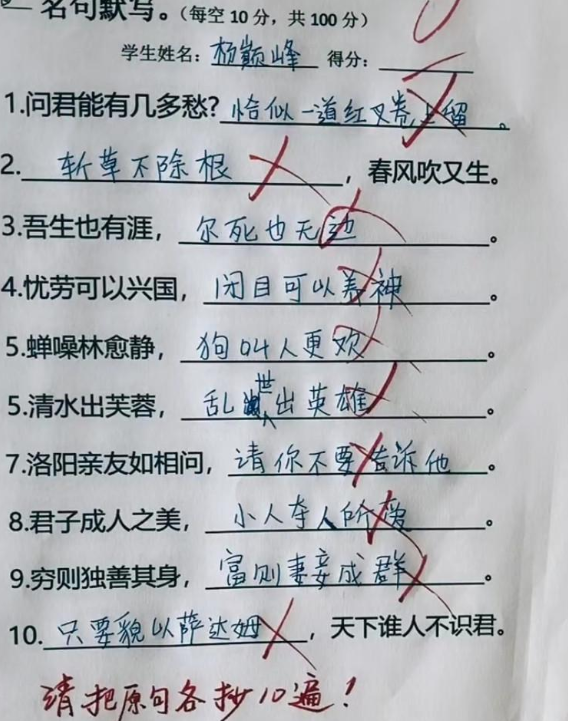 名句默写。(每空 10 分，共 100 分)
学生姓名：杨巅峰 得分：
1.问君能有几多愁？恰似一道红叉卷上留。
2.斩草不除根，春风吹又生。
3.吾生也有涯，尔死也无边。
4.忧劳可以兴国，闭目可以养神。
5.蝉噪林愈静，狗叫人更欢。
5.清水出芙蓉，乱世出英雄。
7.洛阳亲友如相问，请你不要告诉他。
8.君子成人之美，小人夺人所爱。
9.穷则独善其身，富则妻妾成群。
10.只要貌以萨达姆，天下谁人不识君。
请把原句各抄10遍！